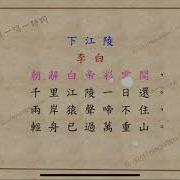 下江陵
李白
朝辭白帝彩雲間，
千里江陵一日還
兩岸猿聲啼不住，
輕舟已過萬重山